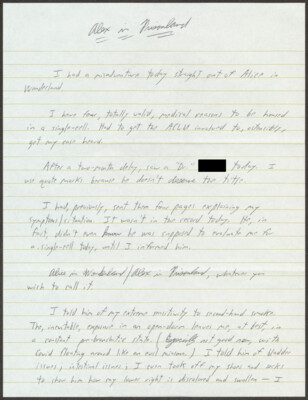 Alex in Prisonland
I had a misadventure today straight out of Alice in
Wonderland.
I have four, totally valid, medical reasons to be housed
in a single-cell. Had to get the ACLU involved to, ostensibly,
get my case heard.
After a two-month delay, saw a "Dr." today. I
use quote marks because he doesn't deserve the title.
I had, previously, sent them four pages explaining my
symptoms/situation. It wasn't in the record today. He, in
fact, didn't even know he was supposed to evaluate me for
a single-cell today, until I informed him.
Alice in Wonderland/Alex in Prisonland, whatever you
wish to call it.
I told him of my extreme sensitivity to second-hand smoke.
The, inevitable, exposure in an open-dorm leaves me, at best, in
a constant pre-bronchitis state (Especially not good now, with
Covid floating around like an evil miasma.) I told him of bladder
issues; intestinal issues; I even took off my shoes and socks
to show him how my right is discolored and swollen — I